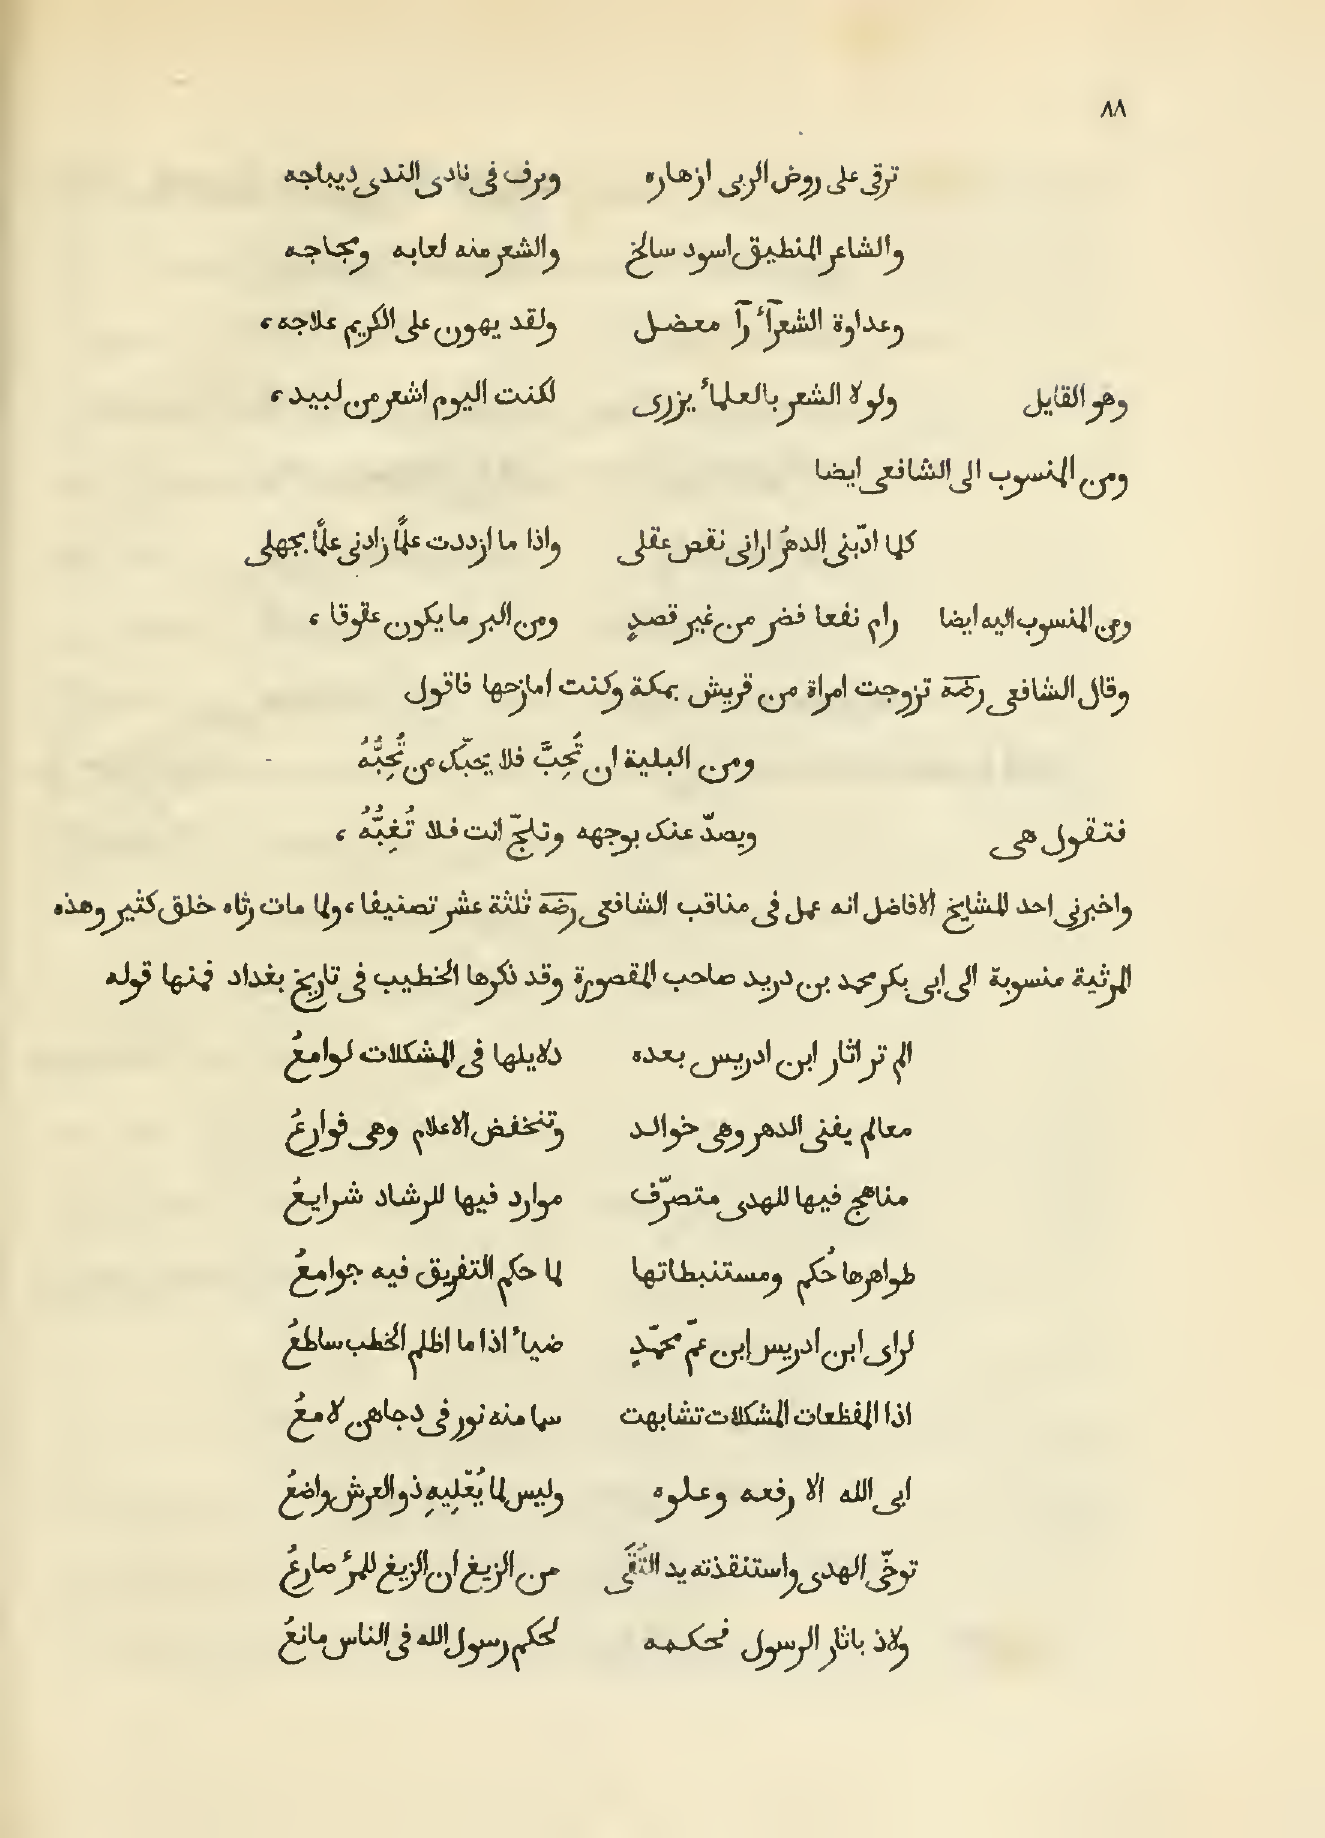 ٨٨
ترقى على روض الربى ازهاره ويرف فى نادى الندى ديباجه
والشاعر المنطيق اسود سالخ والشعر منه لعابه ومجاجه
وعداوة الشعرآء رآ معضل ولقد يهون على الكريم علاجه،
وهو القايل ولولا الشعر بالعلماء يزرى لكنت اليوم اشعر من لبيد،
ومن المنسوب الى الشافعى ايضا
كلما ادّبنى الدهرُ ارانى نقص عقلى واذا ما ازددت علمًا زادنى علمًا بجهلى
ومن المنسوب اليه ايضا رام نفعا فضر من غير قصدٍ ومن البر ما يكون عقوقا،
وقال الشافعى رضه تزوجت امراة من قريش بمكة وكنت امازحها فاقول
ومن البلية ان تُحِبَّ فلا يحبّك من تُحِبُّهُ
فتقول هى ويصدّ عنك بوجهه وتلجّ انت فلا تُغِبُّهُ،
واخبرنى احد المشايخ الافاضل انه عمل فى مناقب الشافعى رضه ثلثة عشر تصنيفا، ولما مات رثاه خلق كثير وهذه
المرثية منسوبة الى ابى بكر محمد بن دريد صاحب المقصورة وقد ذكرها الخطيب فى تاريخ بغداد فمنها قوله
الم تر اثار ابن ادريس بعده دلايلها فى المشكلات لوامعُ
معالم يفنى الدهر وهى خوالد وتنخفض الاعلام وهى فوارعُ
مناهج فيها للهدى متصرّف موارد فيها للرشاد شرايعُ
ظواهرها حُكم ومستنبطاتها لما حكم التفريق فيه جوامعُ
لراى ابن ادريس ابن عمّ محمّدٍ ضياء اذا ما اظلم الخطب ساطعُ
اذا المفظعات المشكلات تشابهت سما منه نور فى دجاهن لامعُ
ابى الله الا رفعه وعلوه وليس لما يُعْلِيهِ ذو العرش واضعُ
توخّى الهدى واستنقذته يد التُقَى من الزيغ ان الزيغ للمرء صارعُ
ولاذ باثار الرسول فحكمه لحكم رسول الله فى الناس مانعُ